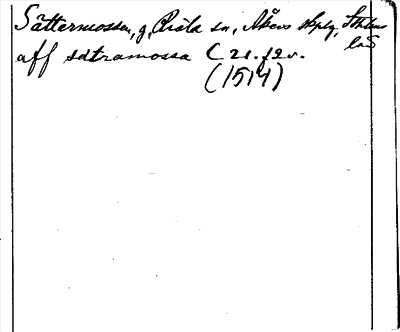 Sättermossen, g, Riala sn, Åkers skplg, Sthlms
län
aff sätramossa C 21. f2 v.
(1514)